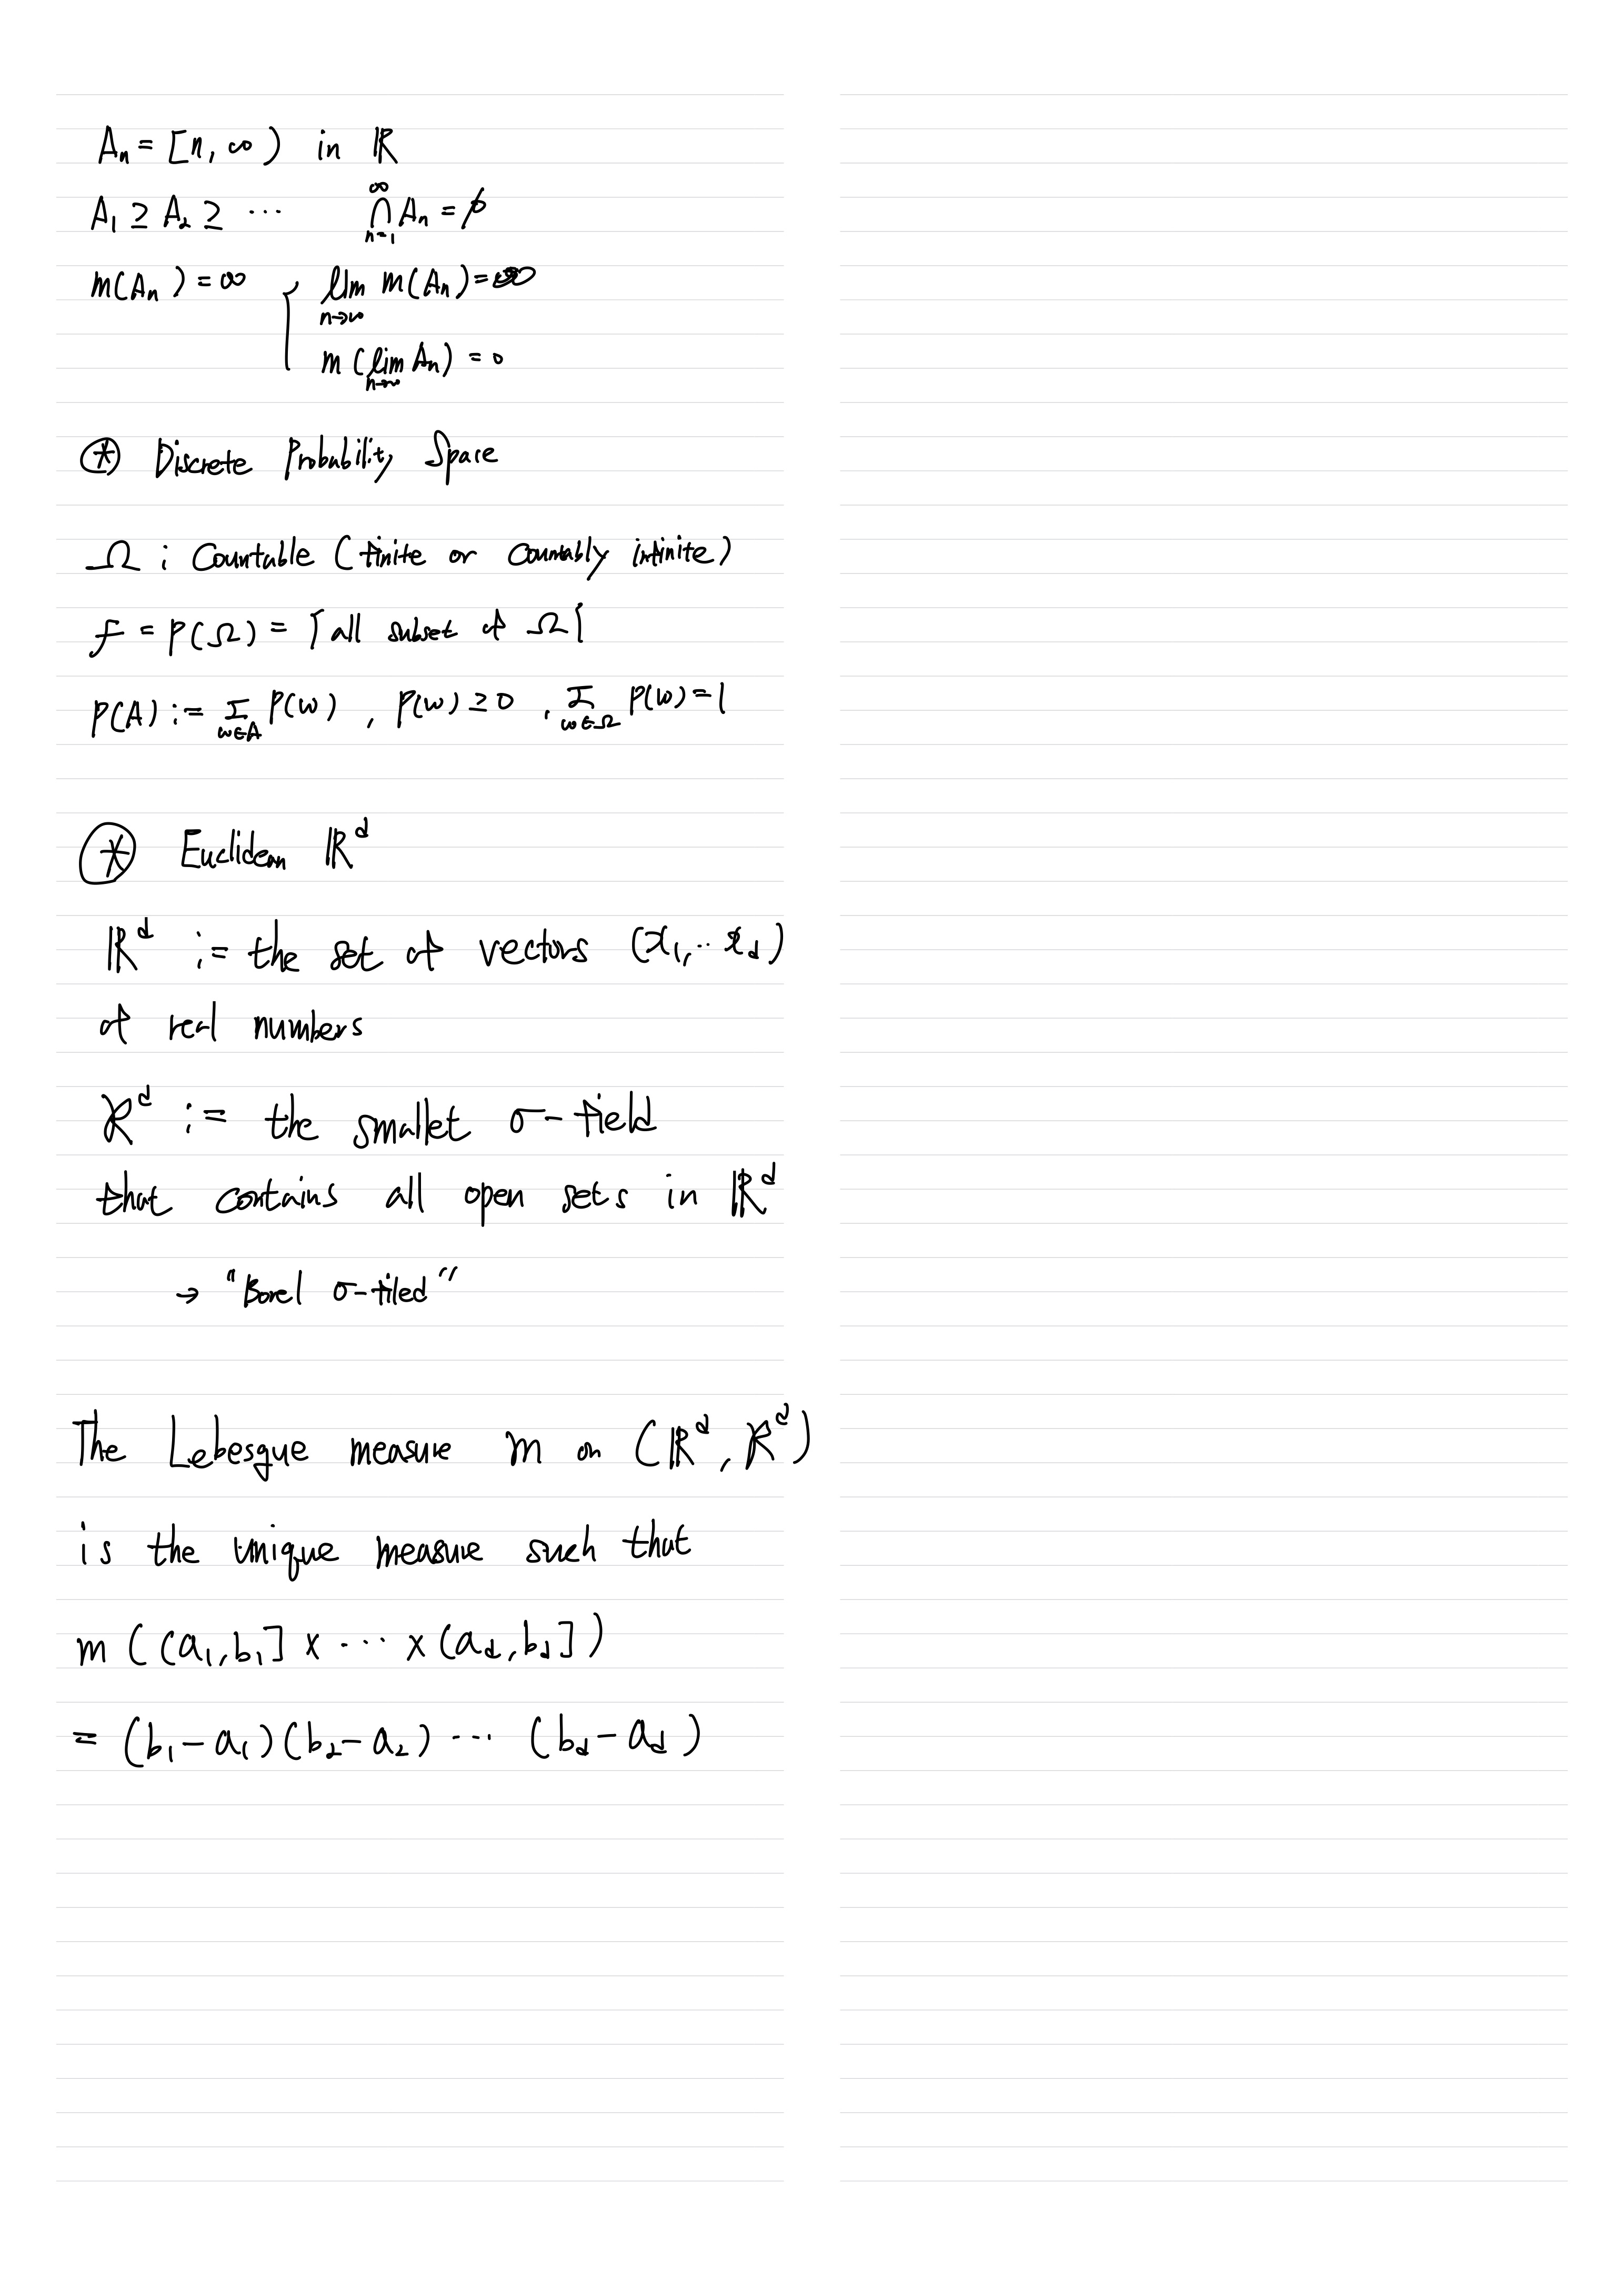 Aₙ = [n, ∞) in ℝ
A₁ ⊇ A₂ ⊇ ⋯ ⋂_{n=1}^{∞} Aₙ = ∅
m(Aₙ) = ∞ { lim_{n→∞} m(Aₙ) = ∞
m(lim_{n→∞} Aₙ) = 0
⊛ Discrete Probability Space
Ω : Countable (finite or countably infinite)
𝓕 = P(Ω) = {all subset of Ω}
P(A) := Σ_{ω∈A} P(ω) , P(ω) ≥ 0 , Σ_{ω∈Ω} P(ω) = 1
⊛ Euclidean ℝᵈ
ℝᵈ := the set of vectors (x₁,⋯x_d)
of real numbers
𝓡ᵈ := the smallet σ-field
that contains all open sets in ℝᵈ
→ "Borel σ-filed"
The Lebesgue measure m on (ℝᵈ, 𝓡ᵈ)
is the unique measure such that
m((a₁,b₁] × ⋯ × (a_d,b_d])
= (b₁-a₁)(b₂-a₂) ⋯ (b_d-a_d)